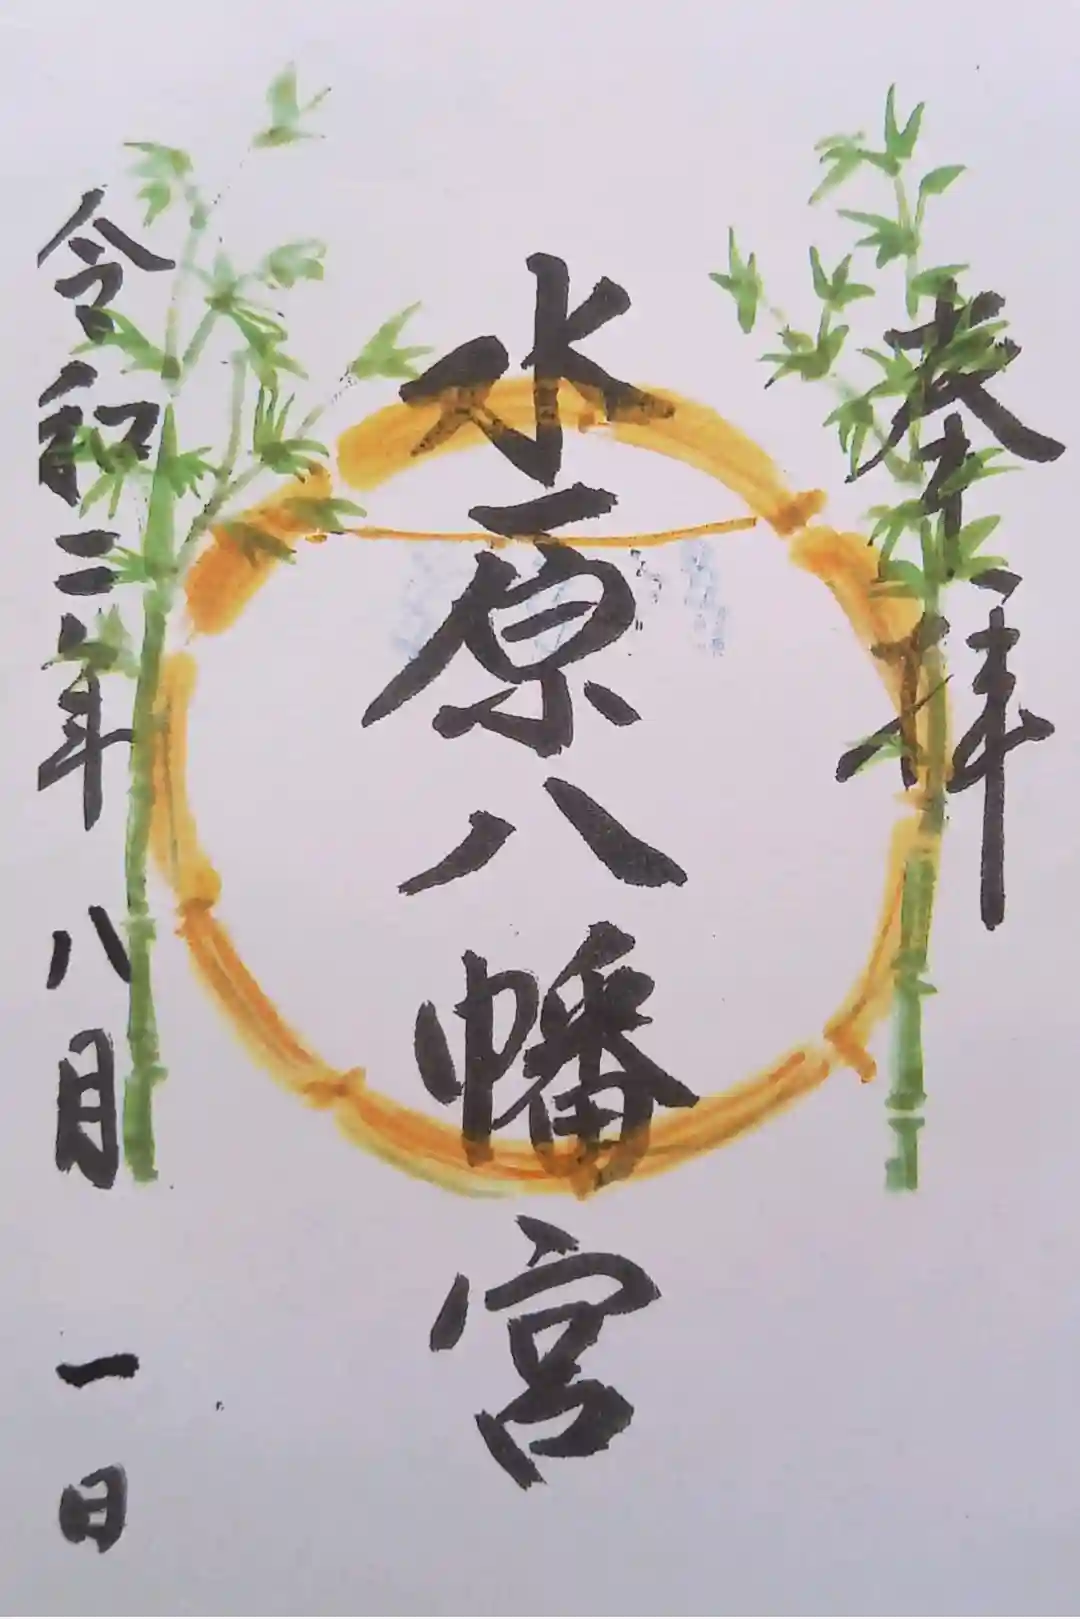 奉拝
水原八幡宮
令和二年八月一日